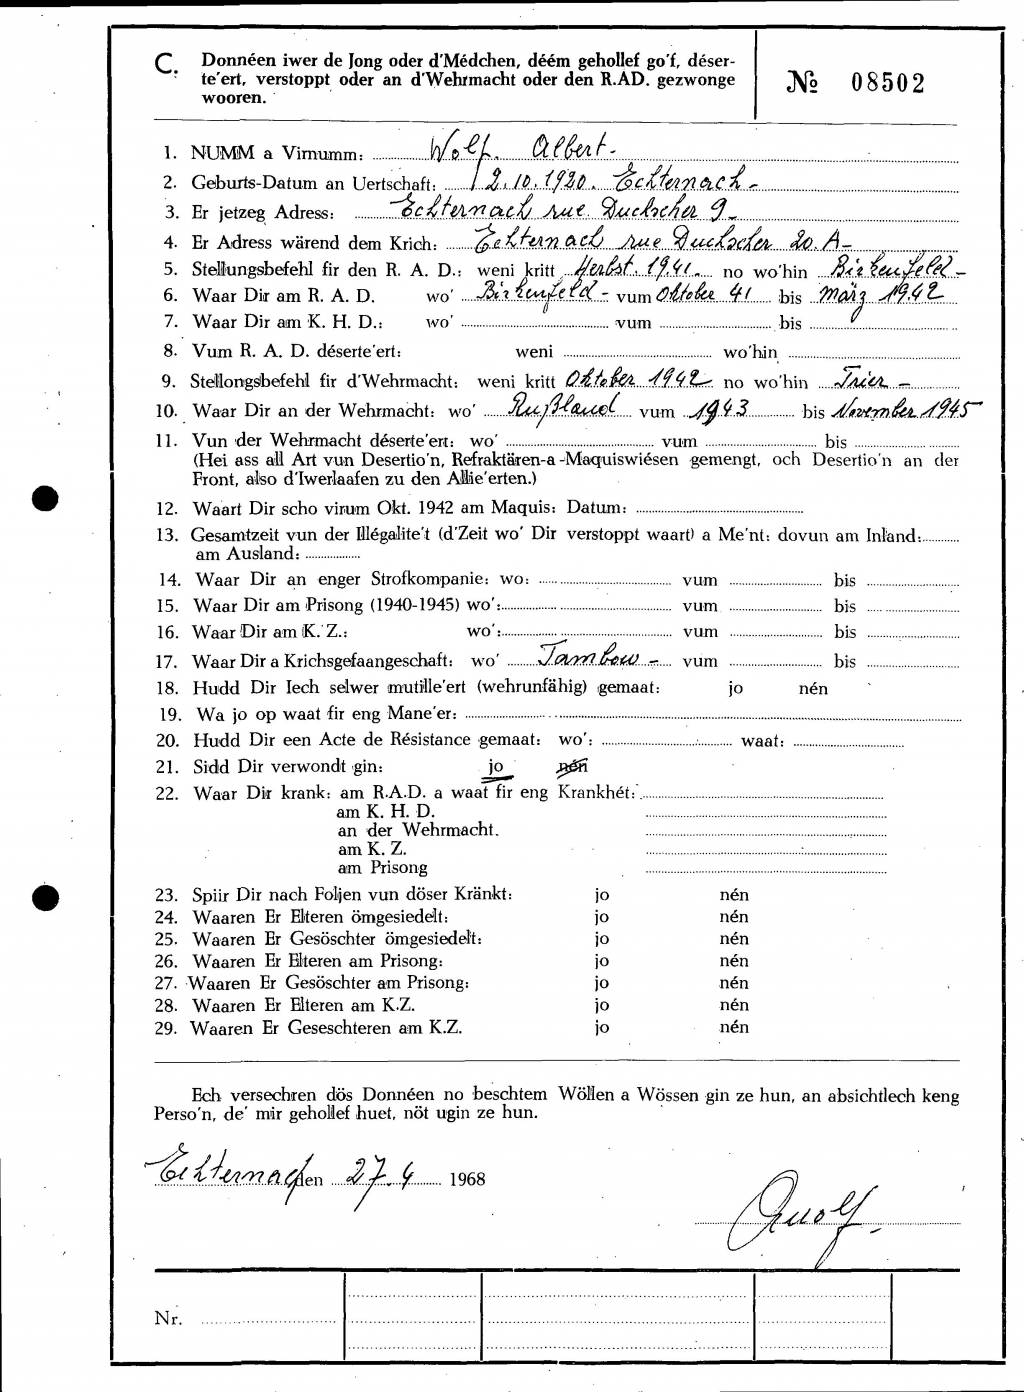 C. Donnéen iwer de Jong oder d'Médchen, déém gehollef go'f, déser-
te'ert, verstoppt oder an d'Wehrmacht oder den R.AD. gezwonge
wooren.
№ 08502
1. NUMM a Virnumm: Wolf. Albert-
2. Geburts-Datum an Uertschaft: 12.10.1920. Echternach-
3. Er jetzeg Adress: Echternach rue Duchscher 9-
4. Er Adress wärend dem Krich: Echternach rue Duchscher 20. A-
5. Stellungsbefehl fir den R. A. D.: weni kritt Herbst. 1941. no wo'hin Birkenfeld-
6. Waar Dir am R. A. D. wo' Birkenfeld- vum Oktober 41 bis März 1942
7. Waar Dir am K. H. D.: wo' vum bis
8. Vum R. A. D. déserte'ert: weni wo'hin
9. Stellongsbefehl fir d'Wehrmacht: weni kritt Oktober 1942 no wo'hin Trier-
10. Waar Dir an der Wehrmacht: wo' Rußland vum 1943 bis November 1945
11. Vun der Wehrmacht déserte'ert: wo' vum bis
(Hei ass all Art vun Desertio'n, Refraktären-a-Maquiswiésen gemengt, och Desertio'n an der
Front, also d'Iwerlaafen zu den Allie'erten.)
12. Waart Dir scho virum Okt. 1942 am Maquis: Datum:
13. Gesamtzeit vun der Illégalite't (d'Zeit wo' Dir verstoppt waart) a Me'nt: dovun am Inland:
am Ausland:
14. Waar Dir an enger Strofkompanie: wo: vum bis
15. Waar Dir am Prisong (1940-1945) wo': vum bis
16. Waar Dir am K. Z.: wo': vum bis
17. Waar Dir a Krichsgefaangeschaft: wo' Tambow- vum bis
18. Hudd Dir Iech selwer mutille'ert (wehrunfähig) gemaat: jo nén
19. Wa jo op waat fir eng Mane'er:
20. Hudd Dir een Acte de Résistance gemaat: wo': waat:
21. Sidd Dir verwondt gin: jo nén
22. Waar Dir krank: am R.A.D. a waat fir eng Krankhét:
am K. H. D.
an der Wehrmacht.
am K. Z.
am Prisong
23. Spiir Dir nach Foljen vun döser Kränkt: jo nén
24. Waaren Er Elteren ömgesiedelt: jo nén
25. Waaren Er Gesöschter ömgesiedelt: jo nén
26. Waaren Er Elteren am Prisong: jo nén
27. Waaren Er Gesöschter am Prisong: jo nén
28. Waaren Er Elteren am K.Z. jo nén
29. Waaren Er Geseschteren am K.Z. jo nén
Ech versechren dös Donnéen no beschtem Wöllen a Wössen gin ze hun, an absichtlech keng
Perso'n, de' mir gehollef huet, nöt ugin ze hun.
Echternach den 27.4 1968
AWolf.
Nr.